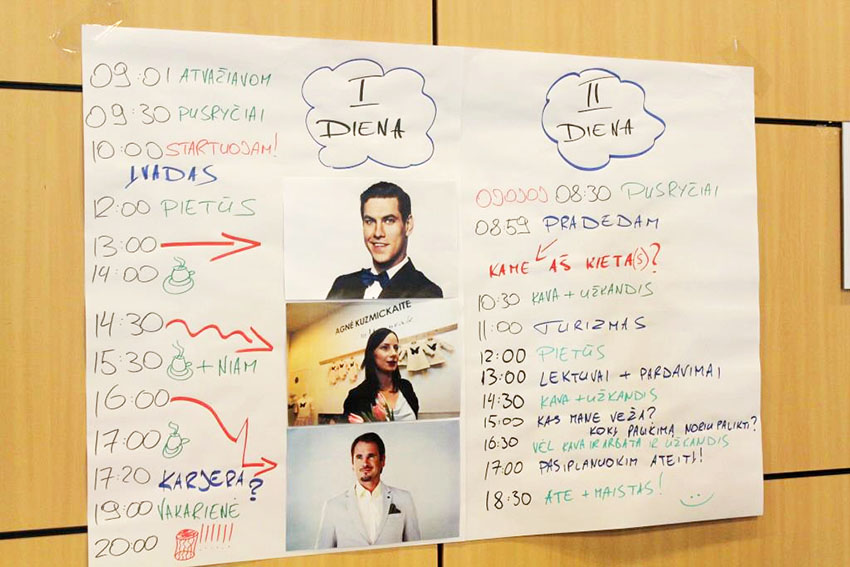 I
DIENA
09:01 ATVAČIAVOM
09:30 PUSRYČIAI
10:00 STARTUOJAM!
ĮVADAS
12:00 PIETŪS
13:00
14:00
14:30
15:30 + NIAM
16:00
17:00
17:20 KARJERA?
19:00 VAKARIENĖ
20:00 !!!!!!
AGNĖ KUZMICKAITĖ
II
DIENA
08:30 PUSRYČIAI
08:59 PRADEDAM
KAME AŠ KIETA(S)?
10:30 KAVA + UŽKANDIS
11:00 TURIZMAS
12:00 PIETŪS
13:00 LĖKTUVAI + PARDAVIMAI
14:30 KAVA + UŽKANDIS
15:00 KAS MANE VEŽA?
KOKĮ PALIKIMĄ NORIU PALIKTI?
16:30 VĖL KAVA IR ARBATA IR UŽKANDIS
17:00 PASIPLANUOKIM ATEITĮ!
18:30 ATE + MAISTAS!